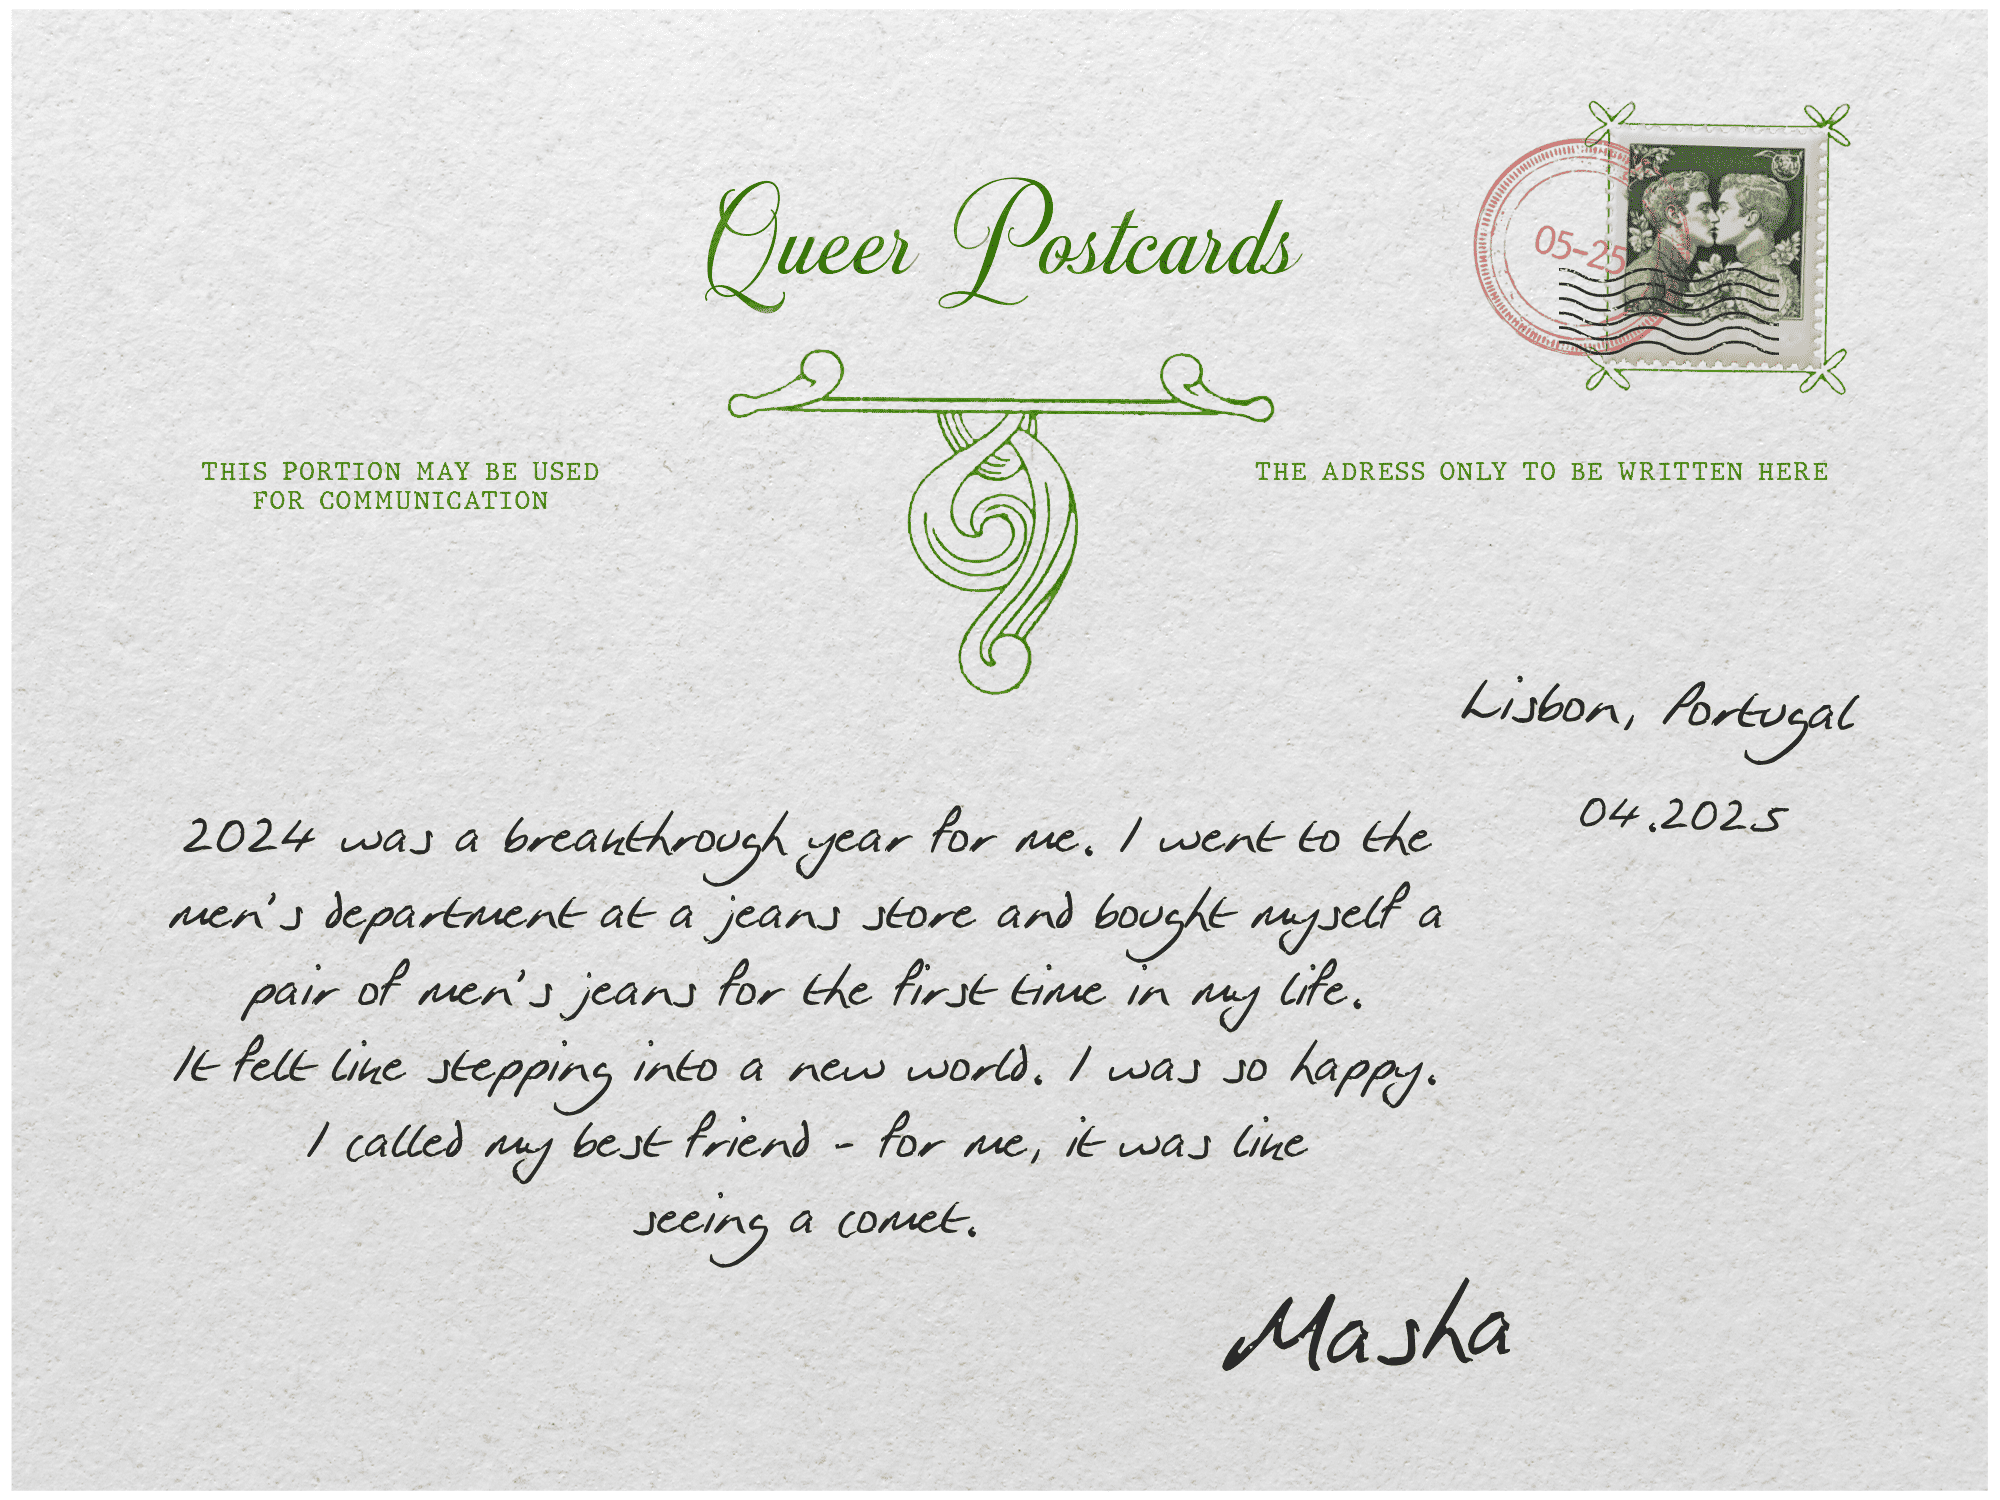 Queer Postcards
05-25
THIS PORTION MAY BE USED
FOR COMMUNICATION
THE ADRESS ONLY TO BE WRITTEN HERE
Lisbon, Portugal
04.2025
2024 was a breakthrough year for me. I went to the
men's department at a jeans store and bought myself a
pair of men's jeans for the first time in my life.
It felt like stepping into a new world. I was so happy.
I called my best friend - for me, it was like
seeing a comet.
Masha